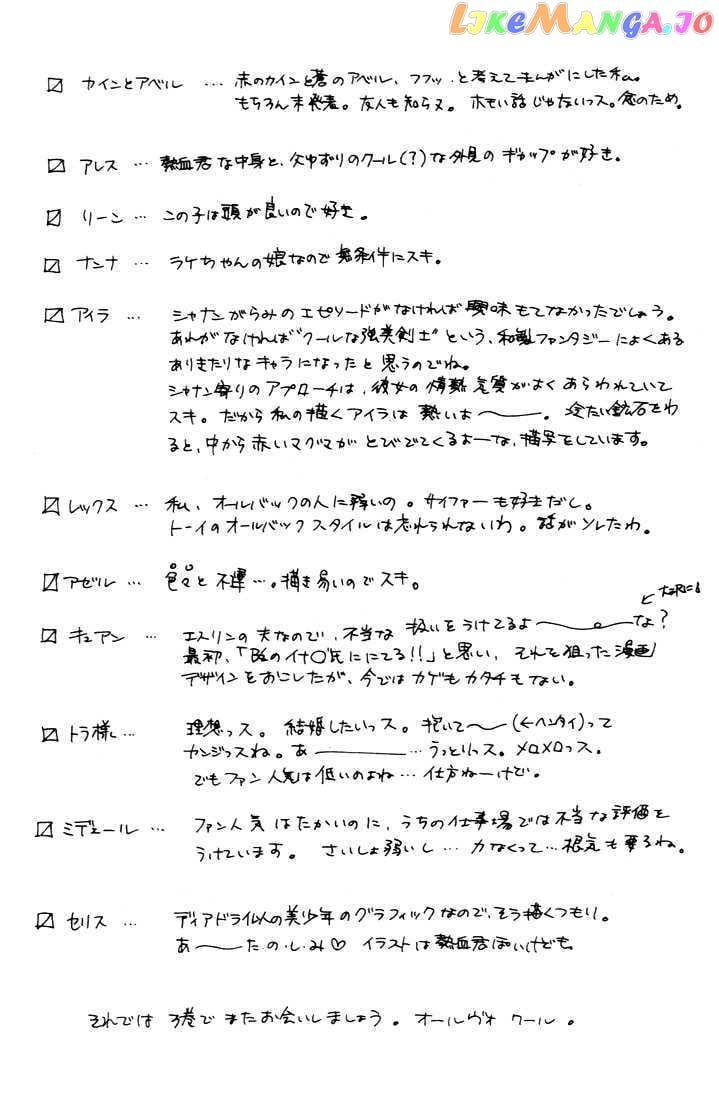 LIKEMANGA.IO
☑ カインとアベル … 赤のカインと蒼のアベル、フフッ と考えてまんがにした私。
もちろん未発表。友人も知らヌ。ホモい話じゃないっス。念のため。
☑ アレス … 熱血君な中身と、父ゆずりのクール(?)な外見のギャップが好き。
☑ リーン … この子は頭が良いので好き。
☑ ナンナ … ラケちゃんの娘なので無条件にスキ。
☑ アイラ … シャナンがらみのエピソードがなければ興味もてなかったでしょう。
あれがなければ"クールな強美剣士"という、和製ファンタジーによくある
ありきたりなキャラになったと思うのでね。
シャナン寄りのアプローチは、彼女の情熱気質がよくあらわれていて
スキ。だから私の描くアイラは熱いよ〜〜。冷たい鉱石をわ
ると、中から赤いマグマがとびでてくるよーな、描写をしています。
☑ レックス … 私、オールバックの人に弱いの。サイファーも好きだし。
トーイのオールバックスタイルは忘れられないわ。話がソレたわ。
☑ アゼル … 色々と不運…。描き易いのでスキ。
☑ キュアン … エスリンの夫なので、不当な扱いをうけてるよ〜〜な?
最初、「Bzのイナ○氏ににてる!!」と思い、それを狙った漫画
デザインをおこしたが、今ではカゲもカタチもない。
☑ トラ様 … 理想っス。結婚したいっス。抱いて〜(←ヘンタイ)って
カンジっスね。あ———…うっとりっス。メロメロっス。
でもファン人気は低いのよね…仕方ねーけど。
☑ ミデェール … ファン人気はたかいのに、うちの仕事場では不当な評価を
うけています。さいしょ弱いし… 力なくって…根気も要るね。
☑ セリス … ディアドラ似の美少年のグラフィックなので、そう描くつもり。
あ〜〜た・の・し・み♡ イラストは熱血君ぽいけども。
それでは 3巻でまたお会いしましょう。オールヴォワール。